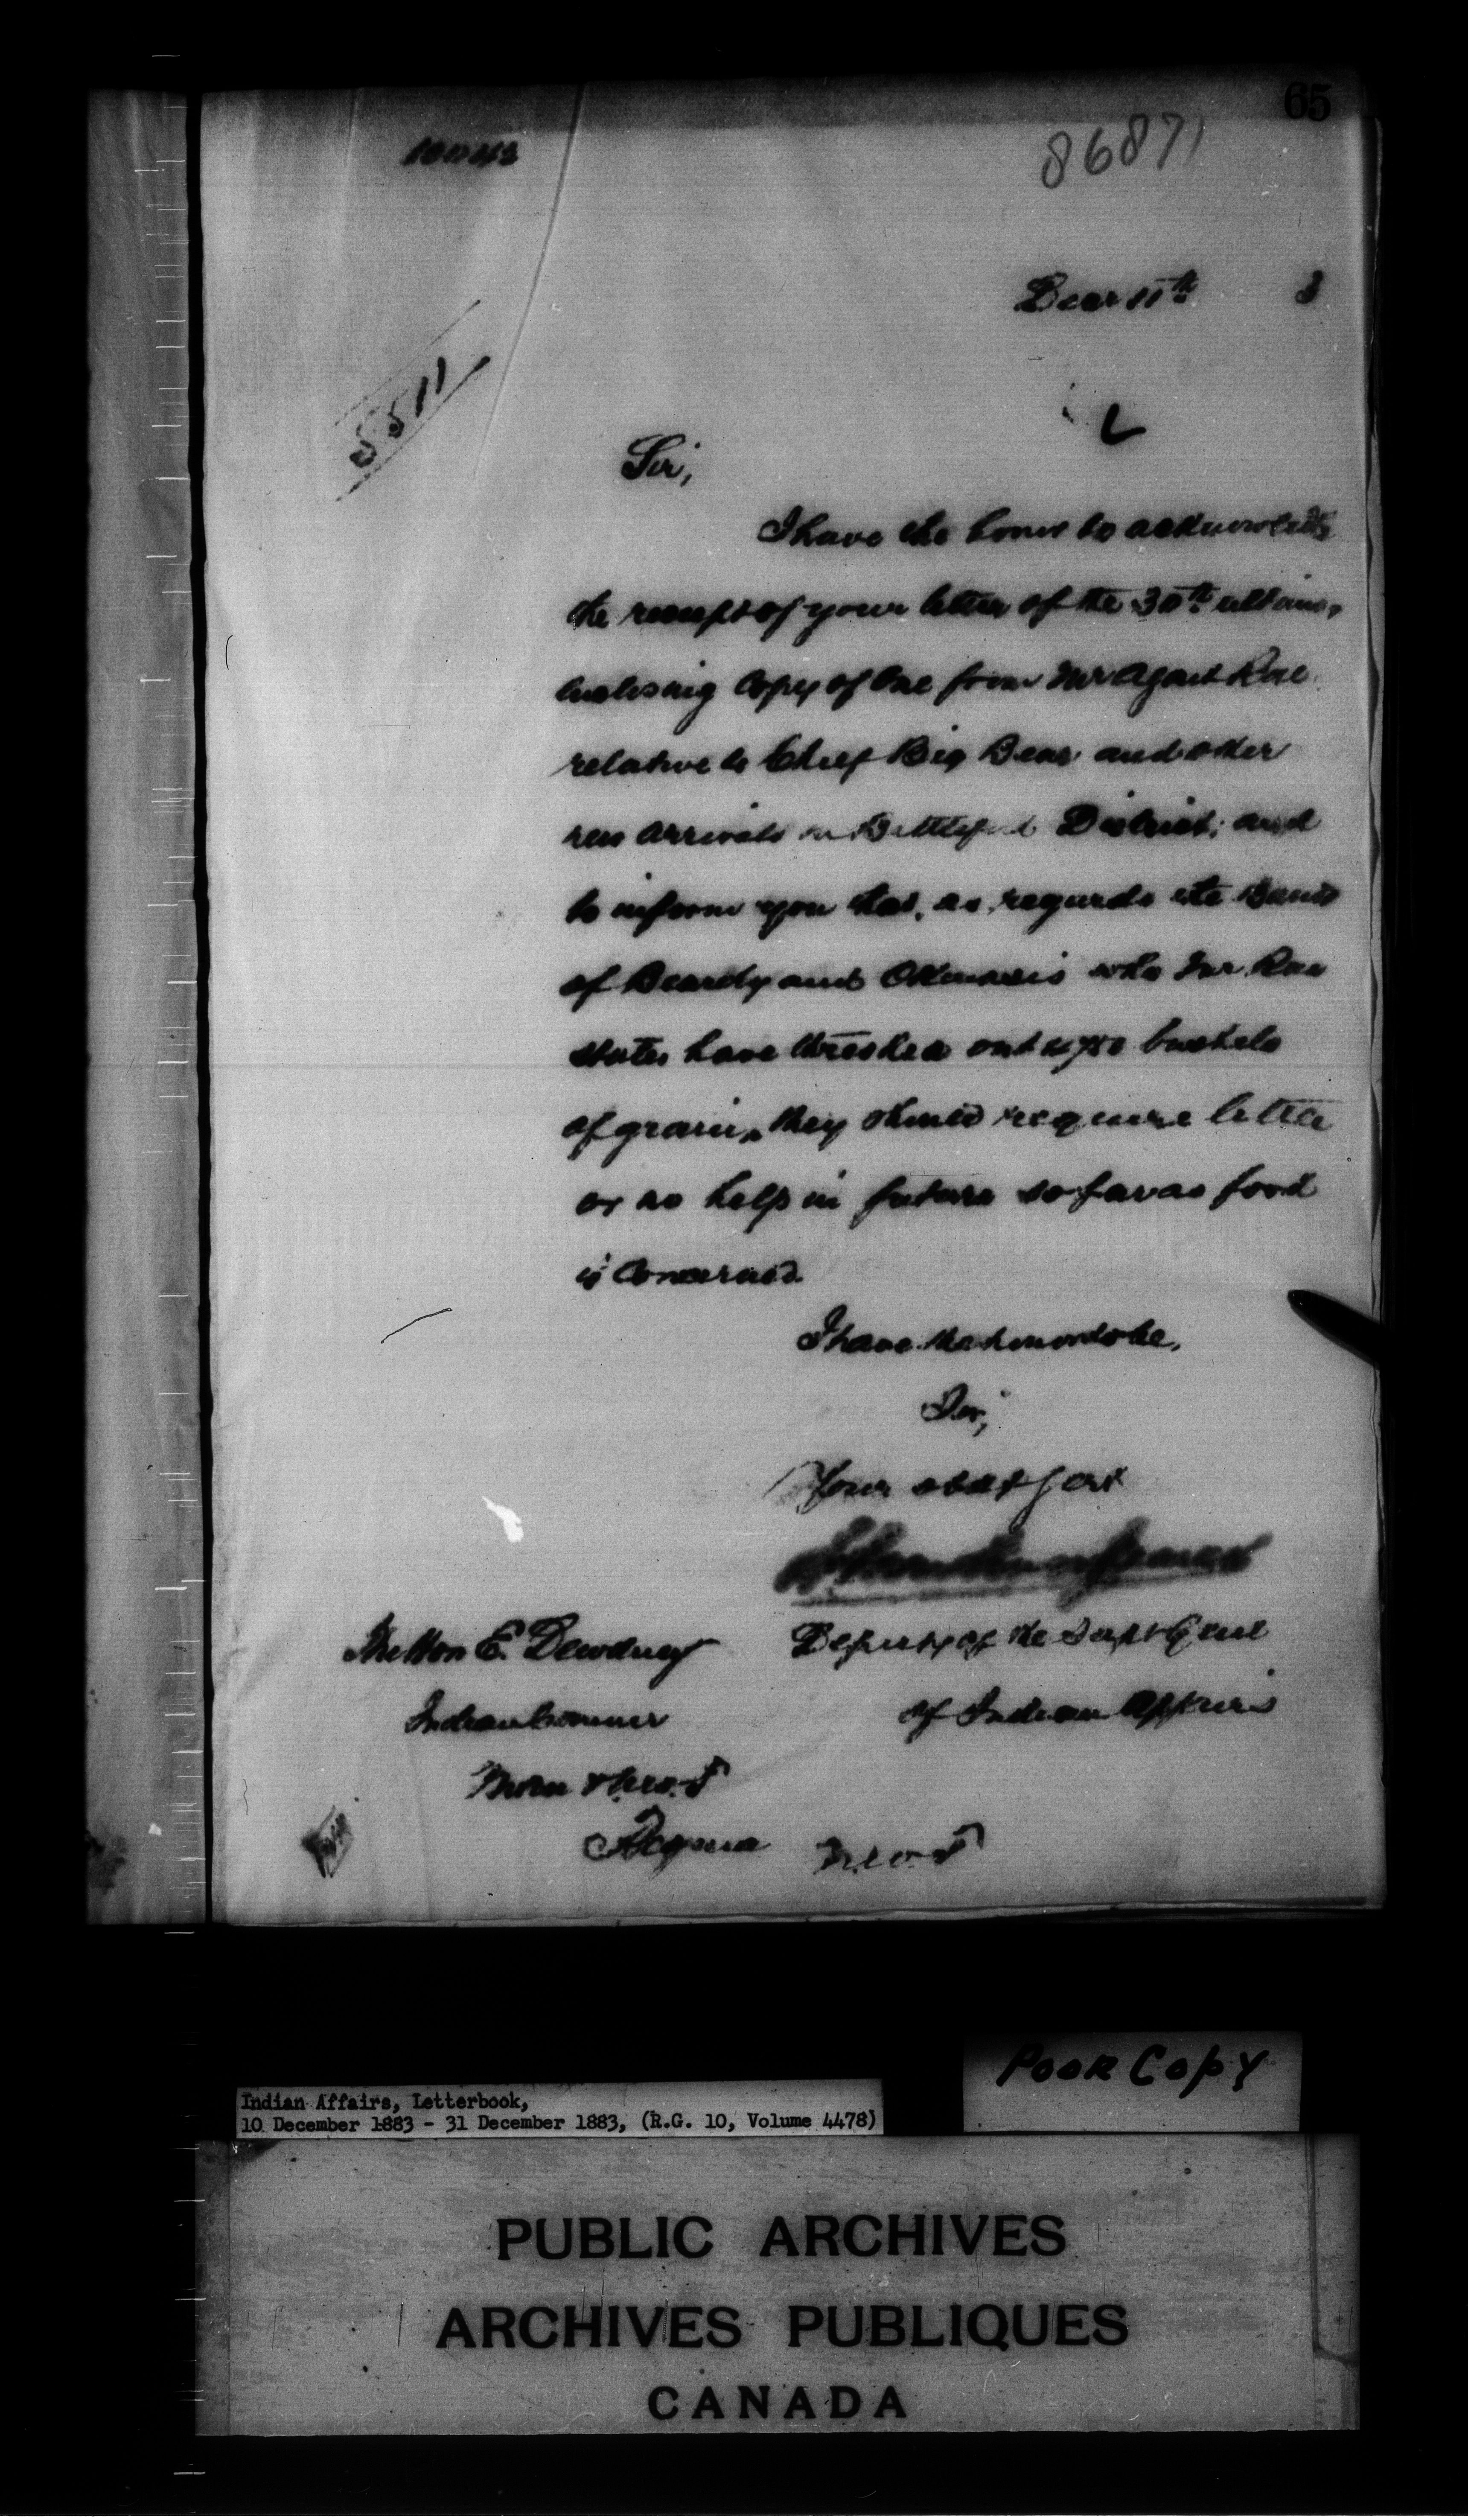 65
86871
Decr 11th 3
5511
Sir,
I have the honor to acknowledge
the receipt of your letter of the 30th ultimo,
enclosing copy of one from Mr Agent Rae
relative to Chief Big Bear and other
new arrivals in Battleford District; and
to inform you that, as regards the Bands
of Beardy and Okemasis who Mr Rae
states have threshed out bushels
of grain, they should require little
or no help in future so far as food
is concerned.
I have the honor to be,
Sir,
Your obedt Servt
Deputy of the Supt Genl
of Indian Affairs
The Hon E. Dewdney
Indian Commr
Regina N.W.T
Poor Copy
Indian Affairs, Letterbook,
10 December 1883 - 31 December 1883, (R.G. 10, Volume 4478)
PUBLIC ARCHIVES
ARCHIVES PUBLIQUES
CANADA